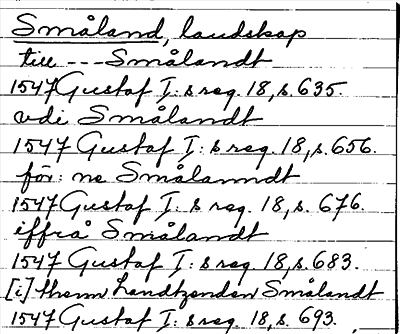 Småland, landskap
till ---Smålandt
1547 Gustaf I:s reg. 18, s. 635.
vdi Smålandt
1547 Gustaf I:s reg. 18, s. 656.
för: ne Smålanndt
1547 Gustaf I:s reg. 18, s. 676.
iffrå Smålandt
1547 Gustaf I:s reg. 18, s. 683.
[i] thenn Landtzenden Smålandt
1547 Gustaf I:s reg. 18, s. 693.